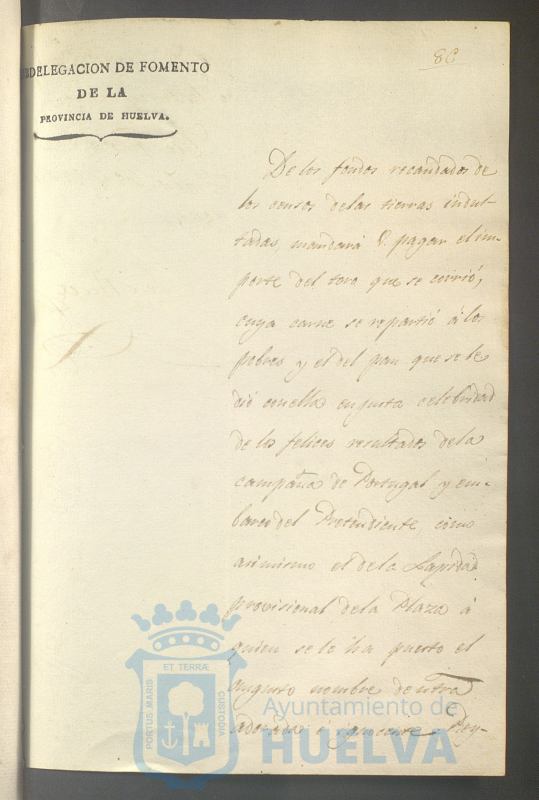 80
BDELEGACION DE FOMENTO
DE LA
PROVINCIA DE HUELVA.
De los fondos recaudados de
los censos de las tierras indul-
tadas, mandará V. pagar el im-
porte del toro que se corrió,
cuya carne se repartió á los
pobres y el del pan que se le
dió con ella en justa celebridad
de los felices resultados de la
campaña de Portugal y em-
barco del Pretendiente como
asimismo el de la Lapida
provisional de la Plaza á
quien se le ha puesto el
augusto nombre de ntra
adorada é ignocente Rey-
ET TERRÆ
PORTUS MARIS
CUSTODIA
Ayuntamiento de
HUELVA